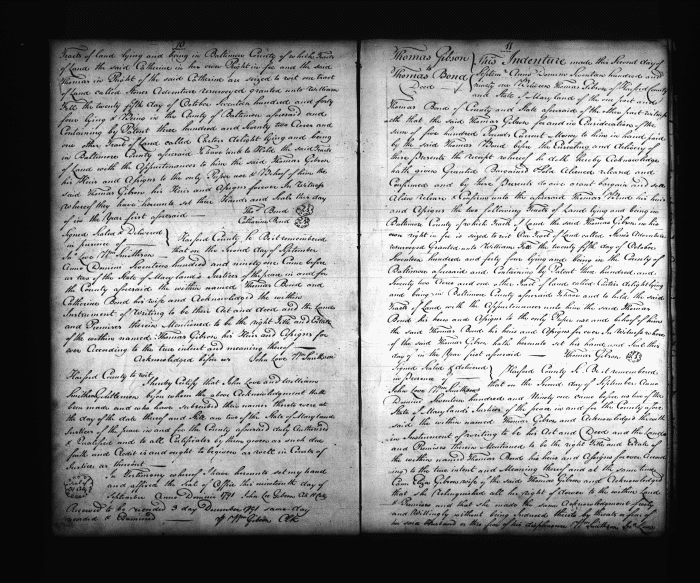 10
Tracts of land lying and being in Baltimore County of which Tracts
of Land the said Catherine in her own Right in fee and the said
Thomas in Right of the said Catherine are seized to wit one tract
of Land called Adventure resurveyed granted unto William
Fell the twenty fifth day of October Seventeen hundred and forty
four lying & being in the County of Baltimore aforesaid and
Containing by Patent three hundred and Seventy two Acres and
one other Tract of Land called delight lying and being
in Baltimore County aforesaid To have & to Hold the said Tracts
of Land with the Appurtenances to him the said Thomas Gibson
his Heirs and Assigns to the only Proper use & Behoof of him the
said Thomas Gibson his Heirs and Assigns forever In Witness
whereof they have hereunto set their Hands and Seals the day
of in the Year first aforesaid
Thos Bond
Catherine Bond
Signed Sealed & Delivered
in presence of
Jno Love Wm Smithson
Harford County Sc. Be it remembered
that on the Second day of September
Anno Domini Seventeen hundred and ninety one Came before
us two of the State of Maryland's Justices of the peace in and for
the County aforesaid the within named Thomas Bond and
Catherine Bond his wife and Acknowledged the within
Instrument of Writing to be their Act and deed and the Land
and Premises therein Mentioned to be the right Title and Estate
of the within named Thomas Gibson his Heirs and Assigns for
ever According to the true intent and meaning thereof
Acknowledged before us John Love Wm Smithson
Harford County to wit,
I hereby Certify that John Love and William
Smithson Gentlemen before whom the above Acknowledgment
been made and who have subscribed their names thereto were at
the day of the date thereof and still are two of the State of Maryland
Justices of the peace in and for the County aforesaid duly Authorised
& Qualified and to all Certificates by them given as such due
faith and Credit is and ought to be given as well in Courts of
Justice as thereout
In Testimony whereof I have hereunto set my hand
and affixed the Seal of Office this nineteenth day of
September Anno Domini 1791 John Lee Gibson
Received to be recorded 3 day December 1791 same day
recorded & Examined Wm Gibson Clk
11
Thomas Gibson
to
Thomas Bond
Deed
This Indenture made this Second day of
Septem Anno Domini Seventeen hundred and
ninety one Between Thomas Gibson of Harford County
and State of Maryland of the one part and
Thomas Bond of County and State aforesaid of the other part Witness
eth that the said Thomas Gibson for and in Consideration of the
sum of five hundred Pounds Current Money to him in hand paid
by the said Thomas Bond before the Executing and delivery of
these Presents the receipt whereof he doth hereby Acknowledge
hath given Granted Bargained Sold Aliened released and
Confirmed and by these Presents do give grant bargain and sell
Alien release & Confirm unto the aforesaid Thomas Bond his heirs
and Assigns the two following Tracts of Land lying and being in
Baltimore County of which Tracts of Land the said Thomas Gibson in his
own right in fee is seized to wit One Tract of Land called Adventure
resurveyed Granted unto William Fell the twenty fifth day of October
Seventeen hundred and forty four lying and being in the County of
Baltimore aforesaid and Containing by Patent three hundred and
Seventy two Acres and one other Tract of Land called delight lying
and being in Baltimore County aforesaid To have and to hold the said
Tracts of Land with the Appurtenances unto him the said Thomas
Bond his heirs and Assigns to the only Proper use and behoof of him
the said Thomas Bond his heirs and Assigns forever In Witness where
of the said Thomas Gibson hath hereunto set his hand and Seal the
day & in the Year first aforesaid Thomas Gibson
Signed Sealed & delivered
in Presence of
John Love Wm Smithson
Harford County Sc. Be it remembered
that on the Second day of September Anno
Domini Seventeen hundred and Ninety one came before us two of the
State of Maryland's Justices of the peace in and for the County afore
said the within named Thomas Gibson and Acknowledged the with
in Instrument of writing to be his Act and Deed and the Lands
and Premises therein Mentioned to be the right Title and Estate of
the within named Thomas Bond his heirs and Assigns forever Accord
ing to the true intent and Meaning thereof and at the same time
Came Gibson wife of the said Thomas Gibson and Acknowledged
that she Relinquished all her right of dower to the within Land
& Premises and that she made the same Acknowledgement freely
and Willingly without being Induced thereto by threats or fear of
her said Husband or thro fear of his displeasure Wm Smithson Jno Love